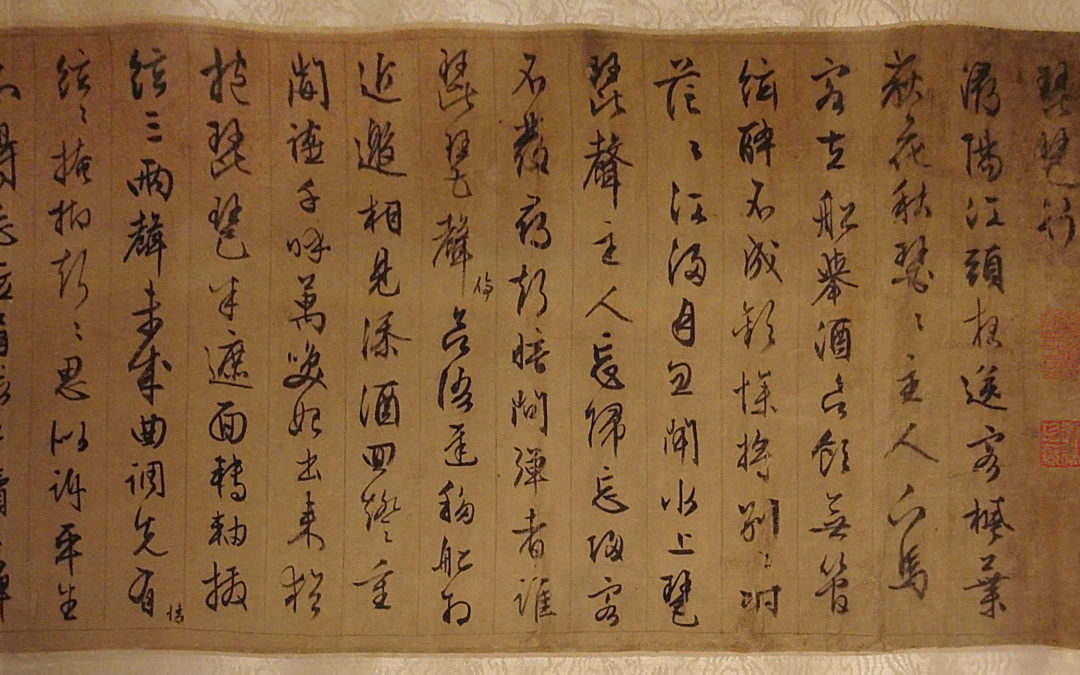 琵琶行
潯陽江頭夜送客楓葉
荻花秋瑟〻主人下馬
客在船舉酒欲飲無管
絃醉不成歡慘將別〻時
茫〻江浸月忽聞水上琵
琶聲主人忘歸忘歸客
不發尋聲暗問彈者誰
琵琶聲停欲語遲移船相
近邀相見添酒回燈〻重
開讌千呼萬喚始出來猶
抱琵琶半遮面轉軸撥
絃三兩聲未成曲調先有情
絃〻掩抑聲〻思似訴平生